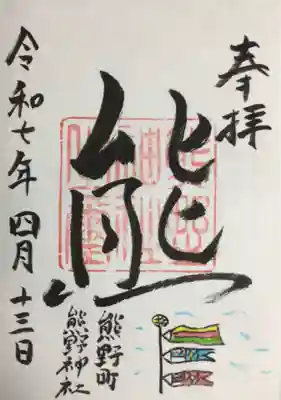 奉拝
熊
熊野町
熊野神社
令和七年四月十三日